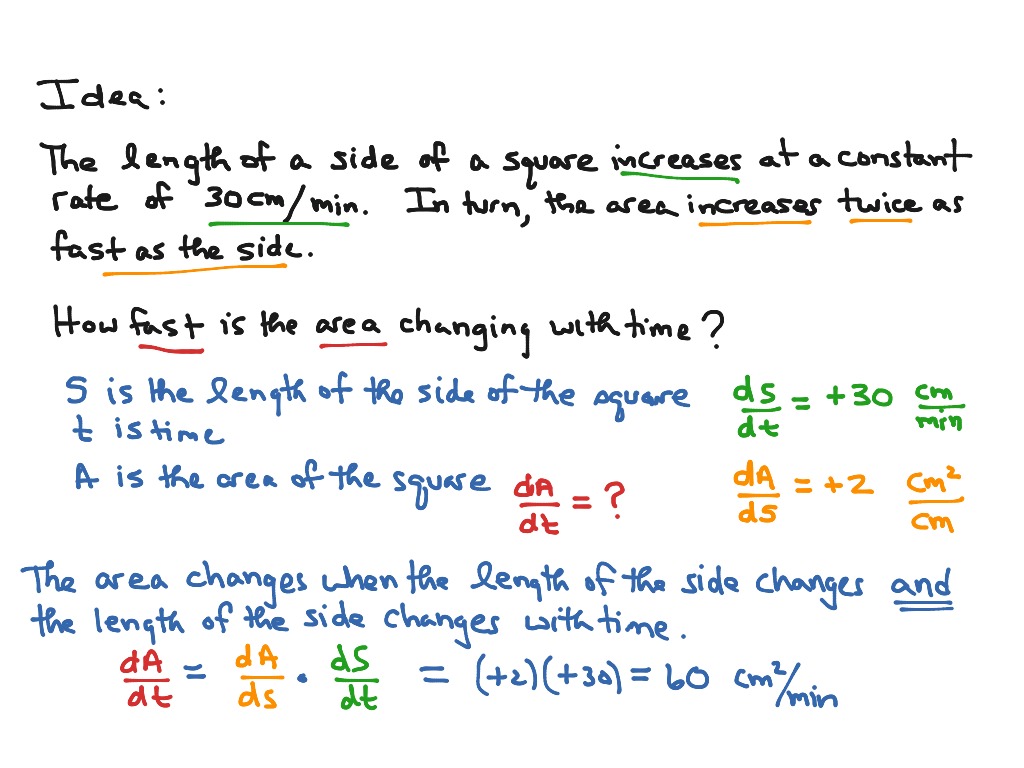 Idea:
The length of a side of a square increases at a constant
rate of 30 cm/min. In turn, the area increases twice as
fast as the side.
How fast is the area changing with time?
S is the length of the side of the square
t is time
dS/dt = +30 cm/min
A is the area of the square
dA/dt = ?
dA/dS = +2 cm²/cm
The area changes when the length of the side changes and
the length of the side changes with time.
dA/dt = dA/ds · dS/dt = (+2)(+30) = 60 cm²/min